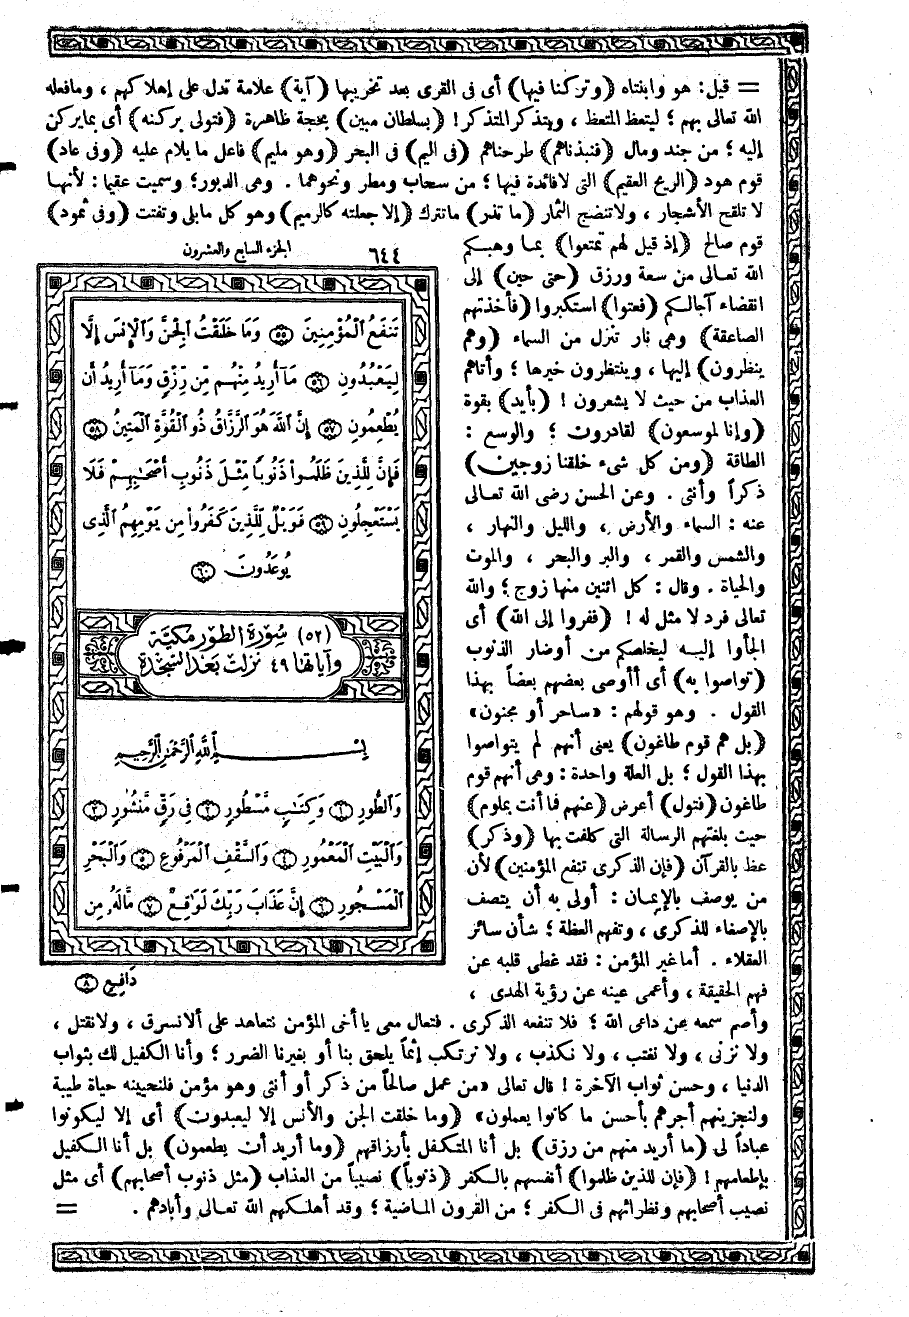 = قيل: هو وابنتاه (وتركنا فيها) أى فى القرى بعد تخريبها (آية) علامة تدل على إهلاكهم ، ومافعله
الله تعالى بهم ؛ ليتعظ المتعظ ، ويتذكر المتذكر ! (بسلطان مبين) بحجة ظاهرة (فتولى بركنه) أى بمايركن
إليه ؛ من جند ومال (فنبذناهم) طرحناهم (فى اليم) فى البحر (وهو مليم) فاعل ما يلام عليه (وفى عاد)
قوم هود (الريح العقيم) التى لافائدة فيها ؛ من سحاب ومطر ونحوهما . وهى الدبور؛ وسميت عقيما : لأنهـا
لا تلقح الأشجار ، ولاتنضج الثمار (ما تذر) ماتترك (إلا جعلته كالرميم) وهو كل مابلى وتفتت (وفى ثمود)
قوم صالح (إذ قيل لهم تمتعوا) بمـا وهبـكم
الله تعـالى من سعة ورزق (حتى حين) إلى
انقضاء آجالـكم (فعتوا) استكبروا (فأخذتهم
الصاعقة) وهى نار تنزل من السماء (وهم
ينظرون) إليها ، وينتظرون خبرها ؛ وأتاهم
العذاب من حيث لا يشعرون ! (بأيد) بقوة
(وإنا لموسعون) لقادرون ؛ والوسع :
الطاقة (ومن كل شىء خلقنا زوجين)
ذكراً وأنثى . وعن الحسن رضى الله تعـالى
عنه : السماء والأرض ، والليل والنهار ،
والشمس والقمر ، والبر والبحر ، والموت
والحياة . وقال : كل اثنين منها زوج ؛ والله
تعالى فرد لا مثل له ! (ففروا إلى الله) أى
الجأوا إليـه ليخلصكم من أوضار الذنوب
(تواصوا به) أى أأوصى بعضهم بعضاً بهذا
القول . وهو قولهم : «ساحر أو مجنون»
(بل هم قوم طاغون) يعنى أنهم لم يتواصوا
بهذا القول ؛ بل العلة واحدة : وهى أنهم قوم
طاغون (فتول) أعرض (عنهم فما أنت بملوم)
حيث بلغتهم الرسالة التى كلفت بها (وذكر)
عظ بالقرآن (فإن الذكرى تنفع المؤمنين) لأن
من يوصف بالإيمـان : أولى به أن يتصف
بالإصغاء للذكرى ، وتفهم العظة ؛ شأن سائر
العقلاء . أما غير المؤمن : فقد غطى قلبه عن
فهم الحقيقة ، وأعمى عينه عن رؤية الهدى ،
وأصم سمعه عن داعى الله ؛ فلا تنفعه الذكرى . فتعال معى يا أخى المؤمن نتعاهد على ألا نسرق ، ولانقتل ،
ولا نزنى ، ولا نغتب ، ولا نكذب ، ولا نرتكب إثماً يلحق بنا أو بغيرنا الضرر ؛ وأنا الكفيل لك بثواب
الدنيا ، وحسن ثواب الآخرة ! قال تعالى «من عمل صالحاً من ذكر أو أنثى وهو مؤمن فلنحيينه حياة طيبة
ولنجزينهم أجرهم بأحسن ما كانوا يعملون» (وما خلقت الجن والأنس إلا ليعبدون) أى إلا ليكونوا
عباداً لى (ما أريد منهم من رزق) بل أنا المتكفل بأرزاقهم (وما أريد أن يطعمون) بل أنا الكفيل
بإطعامهم ! (فإن للذين ظلموا) أنفسهم بالكفر (ذنوباً) نصيباً من العذاب (مثل ذنوب أصحابهم) أى مثل
نصيب أصحابهم ونظرائهم فى الـكفر ؛ من القرون المـاضية ؛ وقد أهلـكهم الله تعـالى وأبادهم . =
٦٤٤ الجزء السابع والعشرون
تَنفَعُ ٱلْمُؤْمِنِينَ ٥٥ وَمَا خَلَقْتُ ٱلْجِنَّ وَٱلْإِنسَ إِلَّا
لِيَعْبُدُونِ ٥٦ مَآ أُرِيدُ مِنْهُم مِّن رِّزْقٍ وَمَآ أُرِيدُ أَن
يُطْعِمُونِ ٥٧ إِنَّ ٱللَّهَ هُوَ ٱلرَّزَّاقُ ذُو ٱلْقُوَّةِ ٱلْمَتِينُ ٥٨
فَإِنَّ لِلَّذِينَ ظَلَمُوا۟ ذَنُوبًا مِّثْلَ ذَنُوبِ أَصْحَـٰبِهِمْ فَلَا
يَسْتَعْجِلُونِ ٥٩ فَوَيْلٌ لِّلَّذِينَ كَفَرُوا۟ مِن يَوْمِهِمُ ٱلَّذِى
يُوعَدُونَ ٦٠
(٥٢) سُورَة الطور مكيّة
وآياتها ٤٩ نزلت بَعد السَّجْدة
بِسْمِ ٱللَّهِ ٱلرَّحْمَـٰنِ ٱلرَّحِيمِ
وَٱلطُّورِ ١ وَكِتَـٰبٍ مَّسْطُورٍ ٢ فِى رَقٍّ مَّنشُورٍ ٣
وَٱلْبَيْتِ ٱلْمَعْمُورِ ٤ وَٱلسَّقْفِ ٱلْمَرْفُوعِ ٥ وَٱلْبَحْرِ
ٱلْمَسْجُورِ ٦ إِنَّ عَذَابَ رَبِّكَ لَوَٰقِعٌ ٧ مَّالَهُۥ مِن
دَافِعٍ ٨